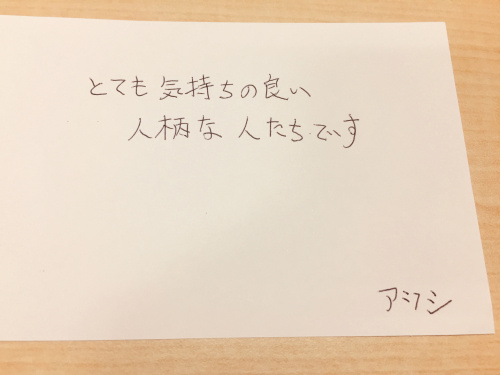 とても気持ちの良い
人柄な人たちです
アミフシ